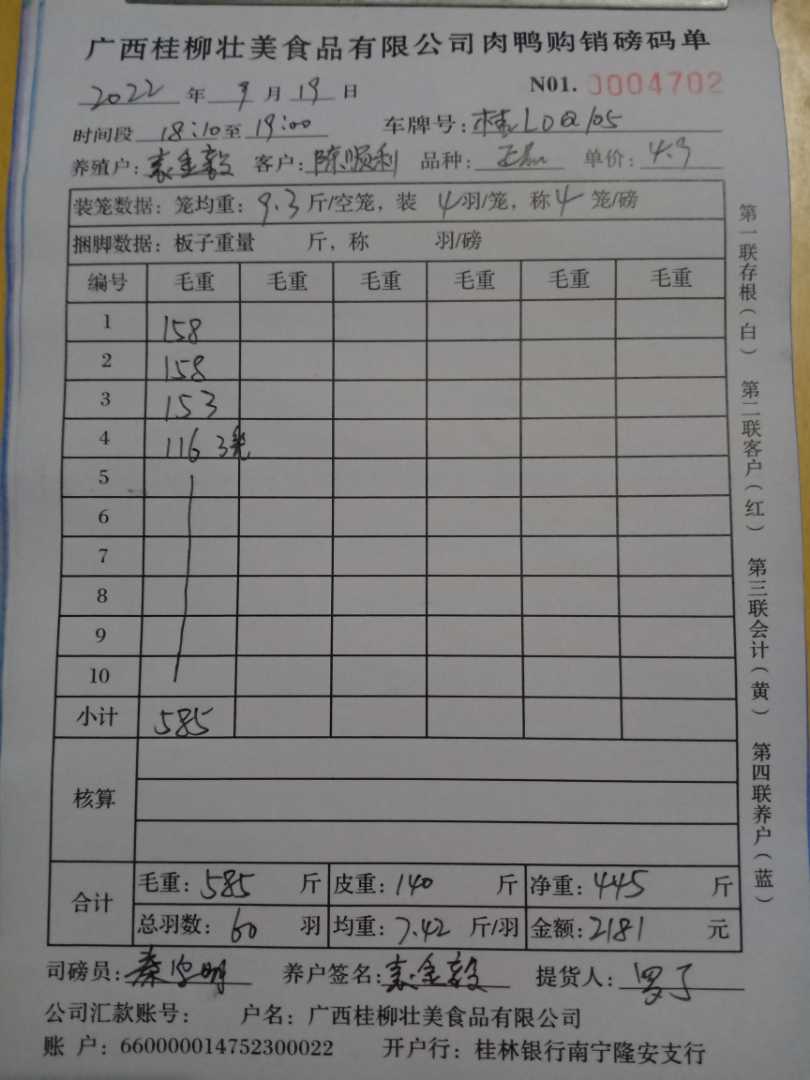 广西桂柳壮美食品有限公司肉鸭购销磅码单
2022年9月19日 N01. 0004702
时间段 18:10至19:00 车牌号: 桂L0Q105
养殖户: 袁金毅 客户: 陈顺利 品种: 单价: 4.9
装笼数据: 笼均重: 9.3斤/空笼, 装 4羽/笼, 称4 笼/磅
捆脚数据: 板子重量 斤, 称 羽/磅
编号 毛重 毛重 毛重 毛重 毛重 毛重
1 158
2 158
3 153
4 116 3笼
5
6
7
8
9
10
小计 585
核算
合计 毛重: 585 斤 皮重: 140 斤 净重: 445 斤
总羽数: 60 羽 均重: 7.42 斤/羽 金额: 2181 元
司磅员: 养户签名: 袁金毅 提货人:
公司汇款账号: 户名: 广西桂柳壮美食品有限公司
账 户: 660000014752300022 开户行: 桂林银行南宁隆安支行
第一联存根(白) 第二联客户(红) 第三联会计(黄) 第四联养户(蓝)